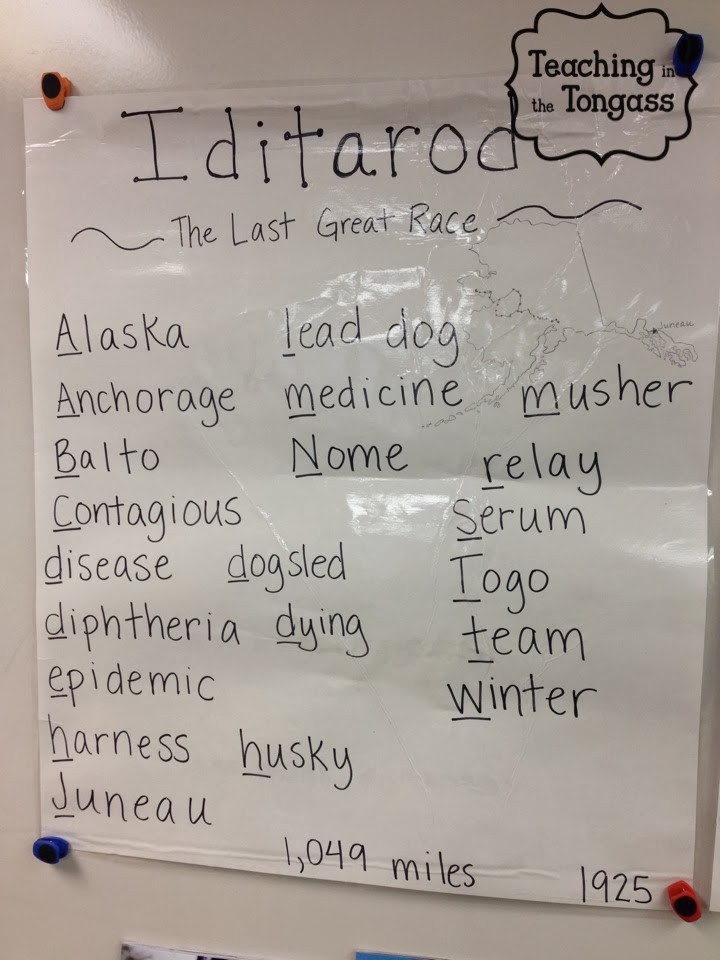 Teaching in
the Tongass
Iditarod
The Last Great Race
Juneau
Alaska lead dog
Anchorage medicine musher
Balto Nome relay
Contagious Serum
disease dogsled Togo
diphtheria dying team
epidemic Winter
harness husky
Juneau
1,049 miles 1925